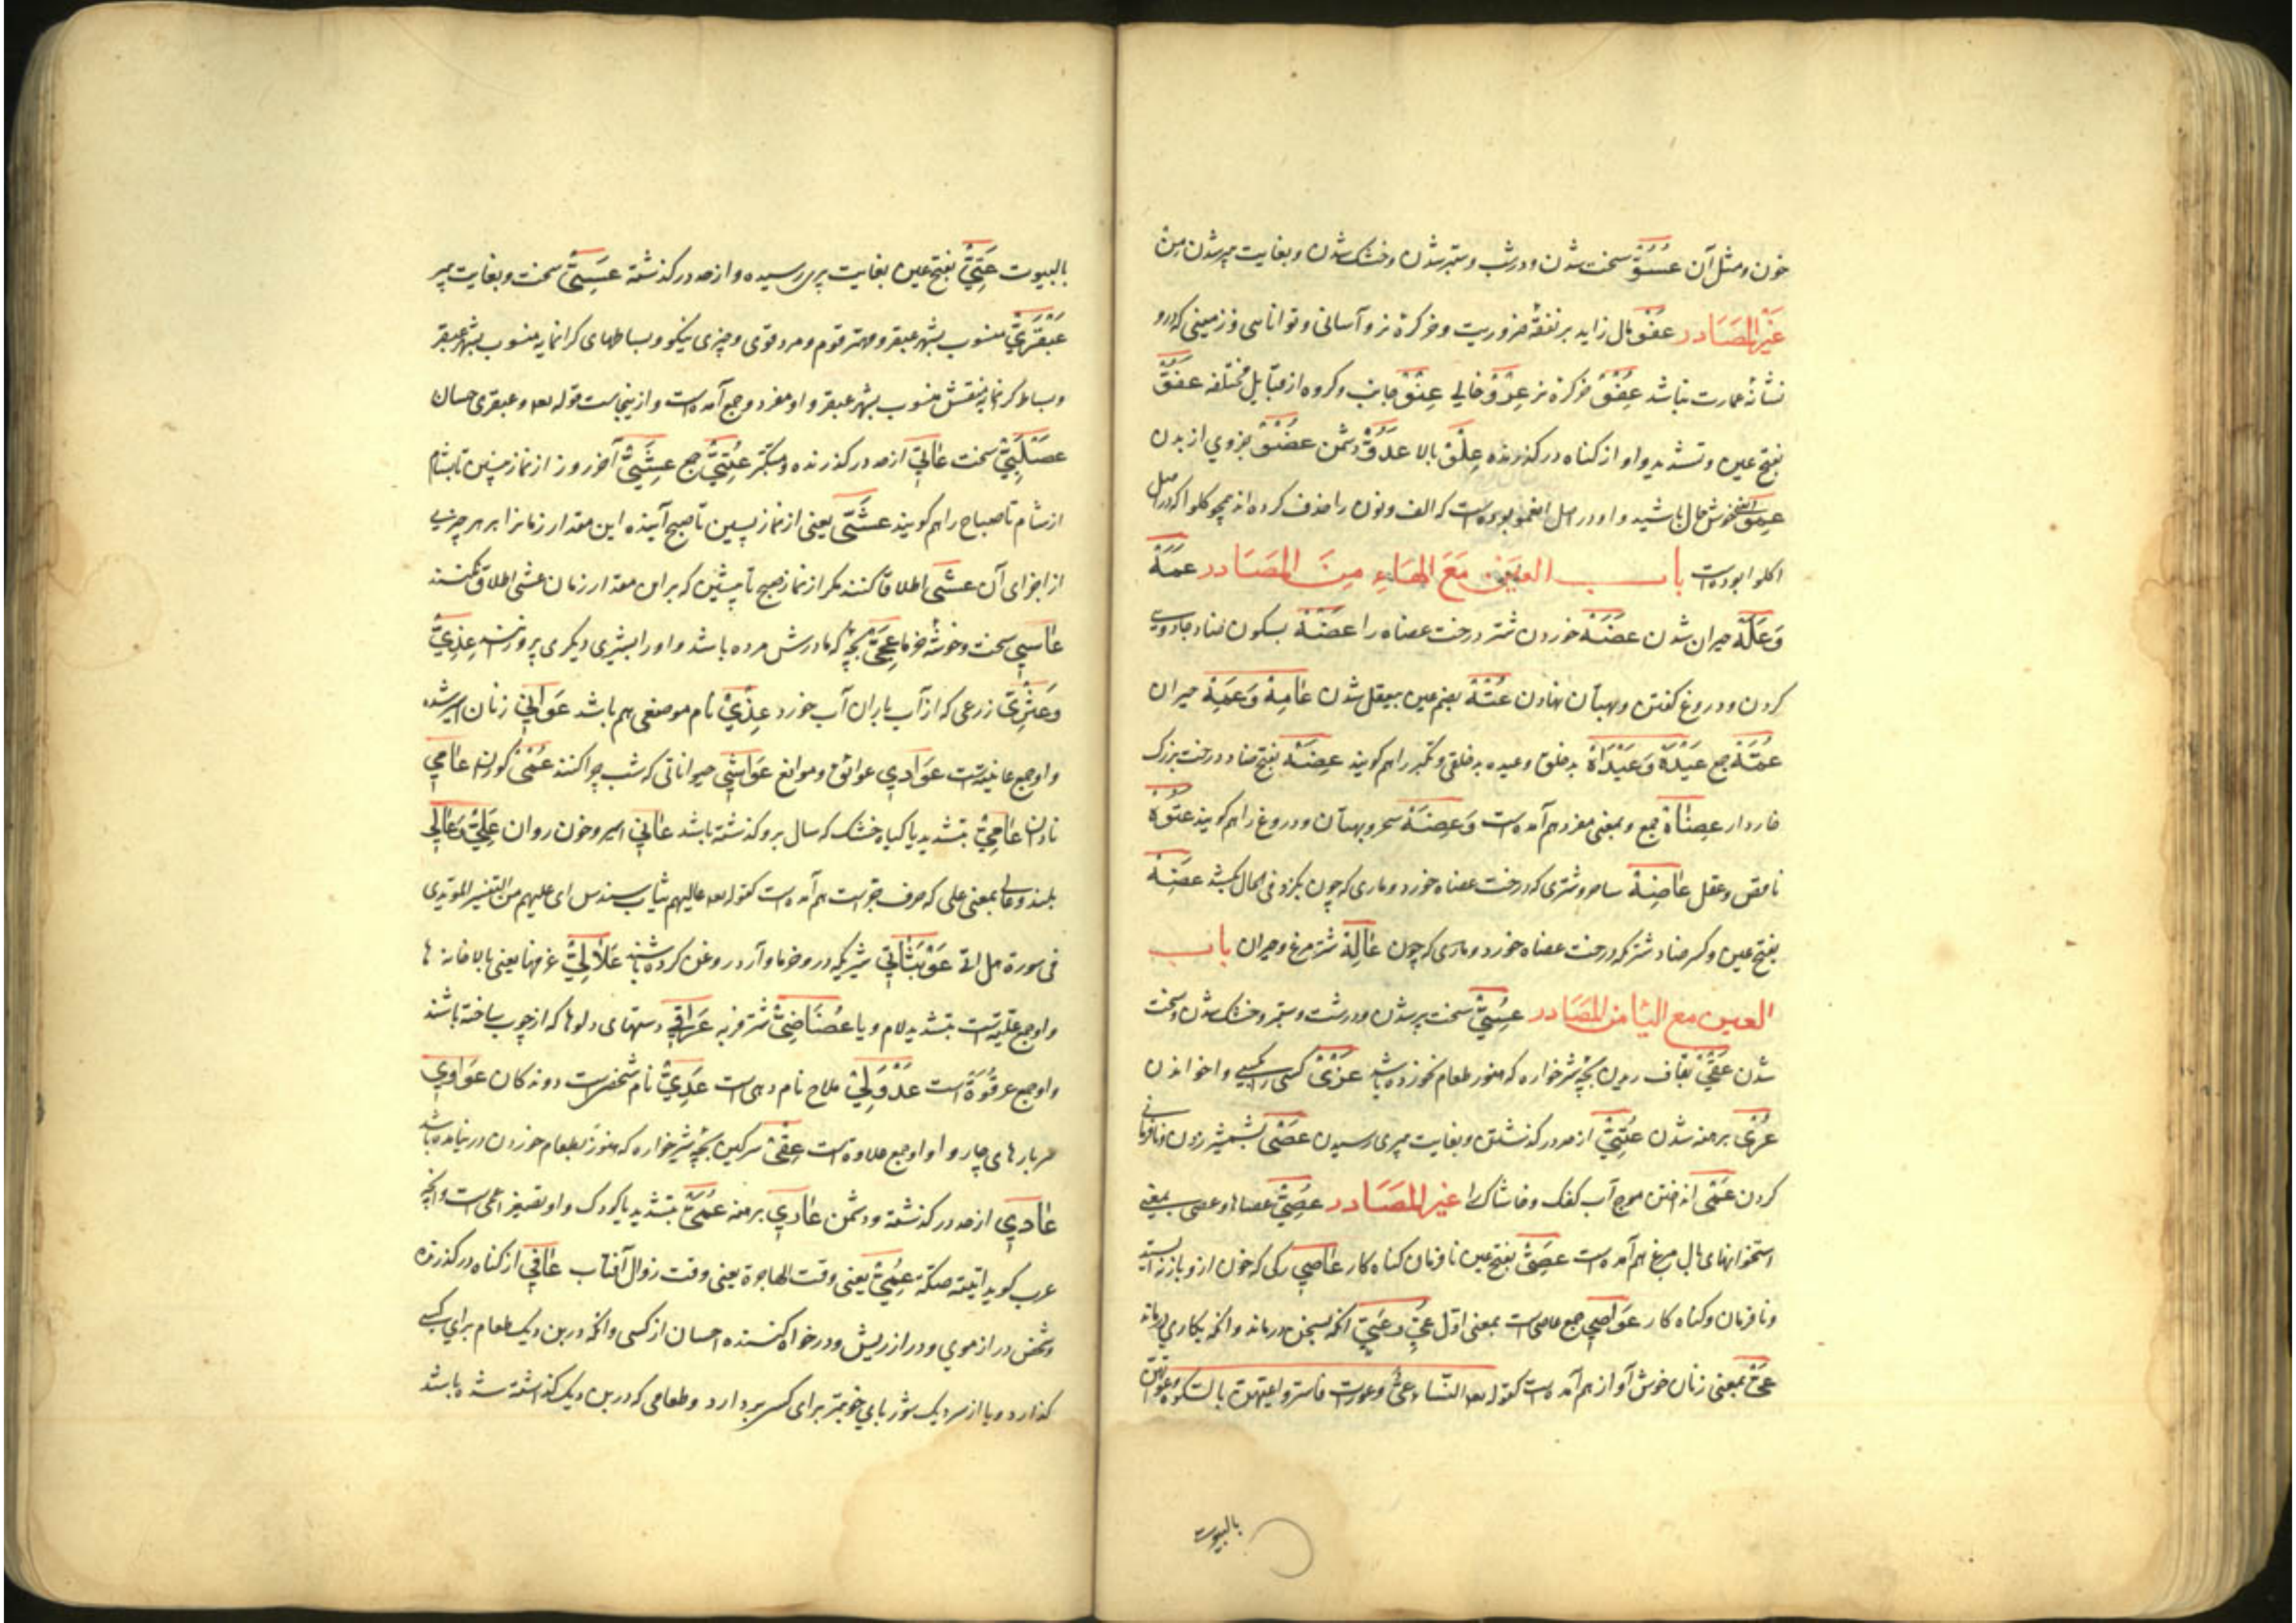 خون و مثل آن عُسُوّ سخت شدن و درشت و ستبر شدن و خشک شدن و بغایت پیر شدن مِنْ
غَیْرِ المَصَادر عَفْو مال زاید بر نفقهٔ ضروریت و خر کرهٔ نر و آسانی و توانایی و زمینی که درو
نشانهٔ عمارت نباشد عِفْو خر کره نر عِرْو خالی عِنْو جانب و گروه از قبایل مختلفه عَفُوّ
بفتح عین و تشدید واو از گناه درگذرنده عِلْو بالا عَدُوّ دشمن عُضْو جزوی از بدن
خوش حال باشید و او در اصل انعموا بوده است که الف و نون را حذف کرده اند همچو کلوا که در اصل
اکلوا بوده است باب العین مَعَ الهَاءِ مِنَ المَصَادر عَمَهٌ
وَعَلَهٌ حیران شدن عَضَهٌ خوردن شتر درخت عضاه را عَضْهٌ بسکون ضاد جادویی
کردن و دروغ گفتن و بهتان نهادن عُتْهٌ بضم عین بیعقل شدن عَامِهٌ وَعَمِهٌ حیران
عُمَّهٌ جمع عَیْدَهٌ وَعَیْدَاهٌ بدخلق و عیده بدخلقی و تکبر را هم گویند عِضَهٌ بفتح ضاد درخت بزرگ
خاردار عِضَاهٌ جمع و بمعنی مفرد هم آمده است وَعِضَهٌ سحر و بهتان و دروغ را هم گویند مَعْتُوهٌ
ناقص عقل عَاضِهٌ ساحر و شتری که درخت عضاه خورد و ماری که چون بگزد فی الحال بکشد عَضِهٌ
بفتح عین و کسر ضاد شتر که درخت عضاه خورد و ماری که چون عَالِهٌ شتر مرغ و حیران باب
العین مع الیا من المصَادر عُسِیّ سخت پیر شدن و درشت و ستبر و خشک شدن و سخت
شدن عَقْیٌ بقاف ریدن بچه شیرخواره که هنوز طعام نخورده باشد عَزْیٌ کسی را بکسی واخواندن
عُرْیٌ برهنه شدن عُتِیّ از حد درگذشتن و بغایت پیری رسیدن عَصْیٌ بشمشیر زدن و نافرمانی
کردن عَمْیٌ انداختن موج آب کفک و خاشاک را غیر المَصَادر عُصِیّ عصاها و عصی بمعنی
استخوانهای بال مرغ هم آمده است عَصِیّ بفتح عین نافرمان گناه کار عَاصِی رگی که خون ازو باز نه ایستد
و نافرمان و گناه کار عَوَاصِی جمع عاصی است بمعنی اول عَیّ وَعَیِیّ آنکه بسخن درماند و آنکه بکاری درماند
عِیّ بمعنی زنان خوش آواز هم آمده است کقوله النساء عیّ و عورات فاستروا عیهن بالسکوت و عوراتهن
بالبیوت
بالبیوت عَتِیّ بفتح عین بغایت پیری رسیده و از حد درگذشته عَسِیّ سخت و بغایت پیر
عَبْقَرِیّ منسوب بشهر عبقر و مهتر قوم و مرد قوی و چیزی نیکو و بساطهای گرانمایه منسوب بشهر عبقر
و بساط گرانمایه منقش منسوب بشهر عبقر و او مفرد و جمع آمده است و ازینجاست قوله و عبقری حسان
عَصَلْبِیّ سخت عَاتِی از حد درگذرنده و متکبر عُتِیّ جمع عَشِیّ آخر روز از نماز پسین تا بشام
از شام تا صباح را هم گویند عَشِیّ یعنی از نماز پسین تا صبح آینده این مقدار زمانرا بر هر جزیی
از اجزای آن عشی اطلاق کنند مگر از نماز صبح تا پیشین که برین مقدار زمان عشی اطلاق نکنند
عَاسِی سخت و خوشه خرما عَجِیّ بچهٔ که مادرش مرده باشد و او را بشیری دیگری پرورند عِذْیٌ
وَعَثَرِیّ زرعی که از آب باران آب خورد عِذْیٌ نام موضعی هم باشد عَوَانِی زنان اسیر شده
و او جمع عانیه است عَوَادِی عوائق و موانع عَوَاشِی حیواناتی که شب چرا کنند عُمْیٌ کوران عَامِی
نادان عَامِیّ بتشدید یا گیاه خشک که سال برو گذشته باشد عَانِی اسیر و خون روان عَلِیّ وَعَالِی
بلند و عالی بمعنی علی که حرف جرست هم آمده است کقوله عالیهم ثیاب سندس ای علیهم من التفسیر
فی سورة هل اتی عَوْبَثَانِی شیر که درو خرما و آرد و روغن کرده باشند عَلَالِیّ غرفها یعنی بالاخانه ها
و او جمع علیّه است بتشدید لام و یا عُضَاضِیّ شتر فربه عَرَاقِی دستهای دلوها که از چوب ساخته باشند
و او جمع عرقوة است عَدَوْلِیّ ملاح نام دهی است عَدِیّ نام شخصی است دونه کان عَوَاوِی
سربارهای چاروا و او جمع علاوه است عِقْیٌ سرگین بچه شیرخواره که هنوز بطعام خوردن در نیامده باشد
عَادِی از حد درگذشته و دشمن عَارِی برهنه عُمَیّ بتشدید یا کودک و او تصغیر اعمی است و آنچه
عرب گوید اتیته صکة عُمَیّ یعنی وقت الهاجرة یعنی وقت زوال آفتاب عَافِی از گناه درگذرنده
و شخص دراز موی و دراز ریش و درخواه کننده احسان از کسی و آنکه در بن دیک طعام برای کسی
گذارد و یا از سر دیک شوربای خوبتر برای کسی بردارد و طعامی که در بن دیک گذاشته شده باشد